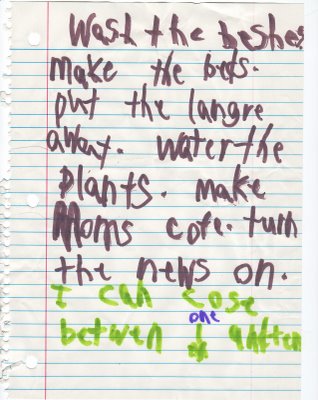 Wash the beshes
make the bets.
put the langre
away. water the
plants. make
Moms cofe. turn
the news on.
I can cose
one
betwen 1